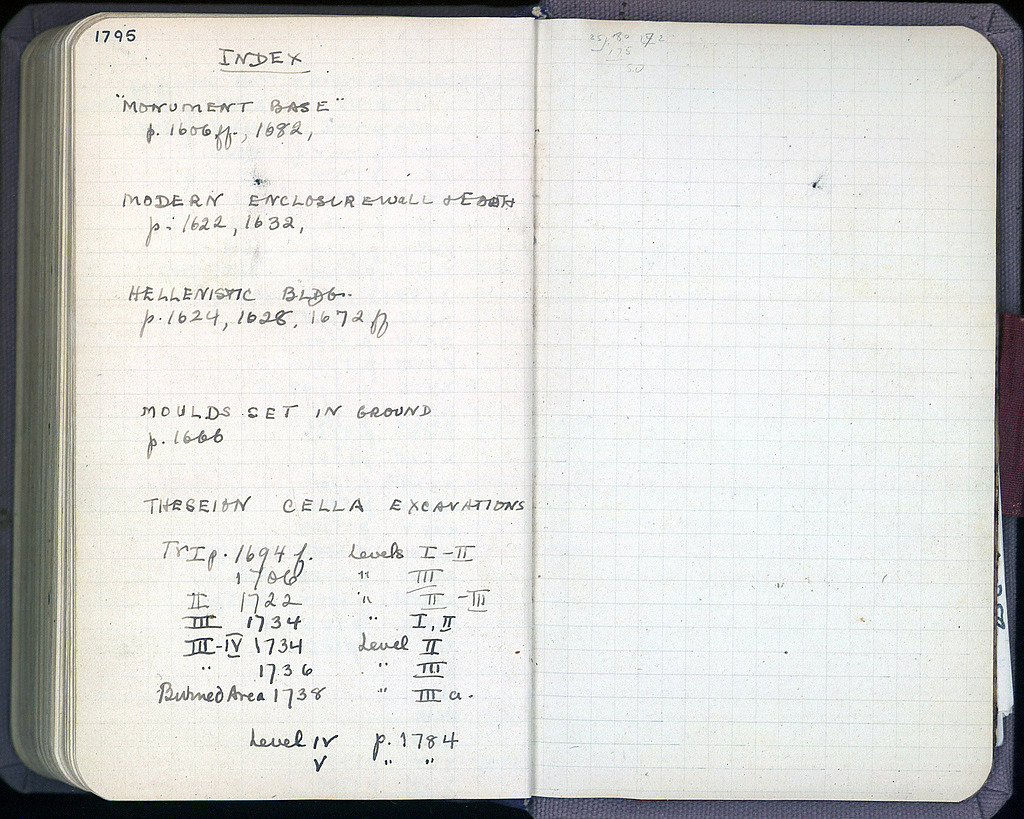 1795
INDEX
"MONUMENT BASE"
p. 1606ff., 1682,
MODERN ENCLOSURE WALL &
p. 1622, 1632,
HELLENISTIC BLDG.
p. 1624, 1628, 1672 ff
MOULDS SET IN GROUND
p. 1666
THESEION CELLA EXCAVATIONS
Tr I p. 1694 f. Levels I-II
1706 " III
II 1722 " II-III
III 1734 " I, II
III-IV 1734 Level II
" 1736 " III
Burned Area 1738 " III a.
Level IV p. 1784
V " "